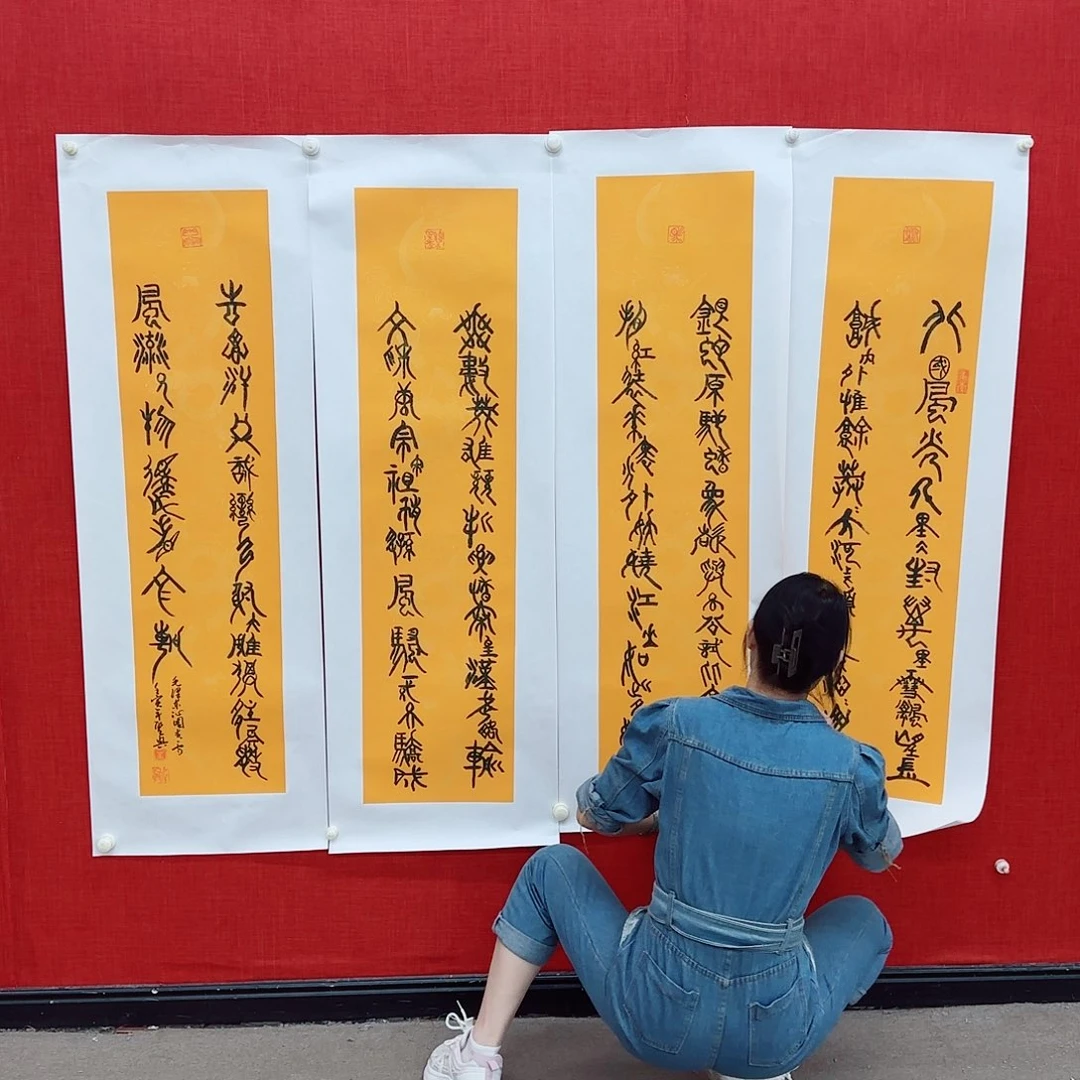 北國風光千里冰封萬里雪飄望長
城內外惟餘莽大河上
銀蛇原馳蠟象欲與天公試比
看紅裝素裹分外妖嬈江山如此多
數英雄競折腰惜秦皇漢武略輸
文采唐宗宋祖稍遜風騷一代天驕成
吉思汗只識彎弓射大雕俱往矣數
風流人物還看今朝
毛澤東沁園春雪